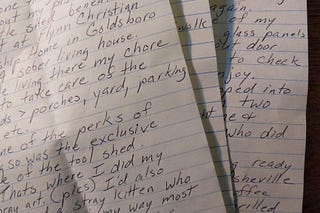 the shed benefi
at Flynn Christian
ship Home in Goldsboro
sober living house.
living there my chore
to take care of the
ds > porches, yard, parking
etc.
ne of the perks of
so was the exclusive
e of the tool shed.
Thats where I did my
ray art. (pics) I'd also
a stray kitten who
way most
again.
e of my
glass panels
walk
out door
to cheek
njoy.
oped into
two
me &
who did
ready
sheville
offee
rilled